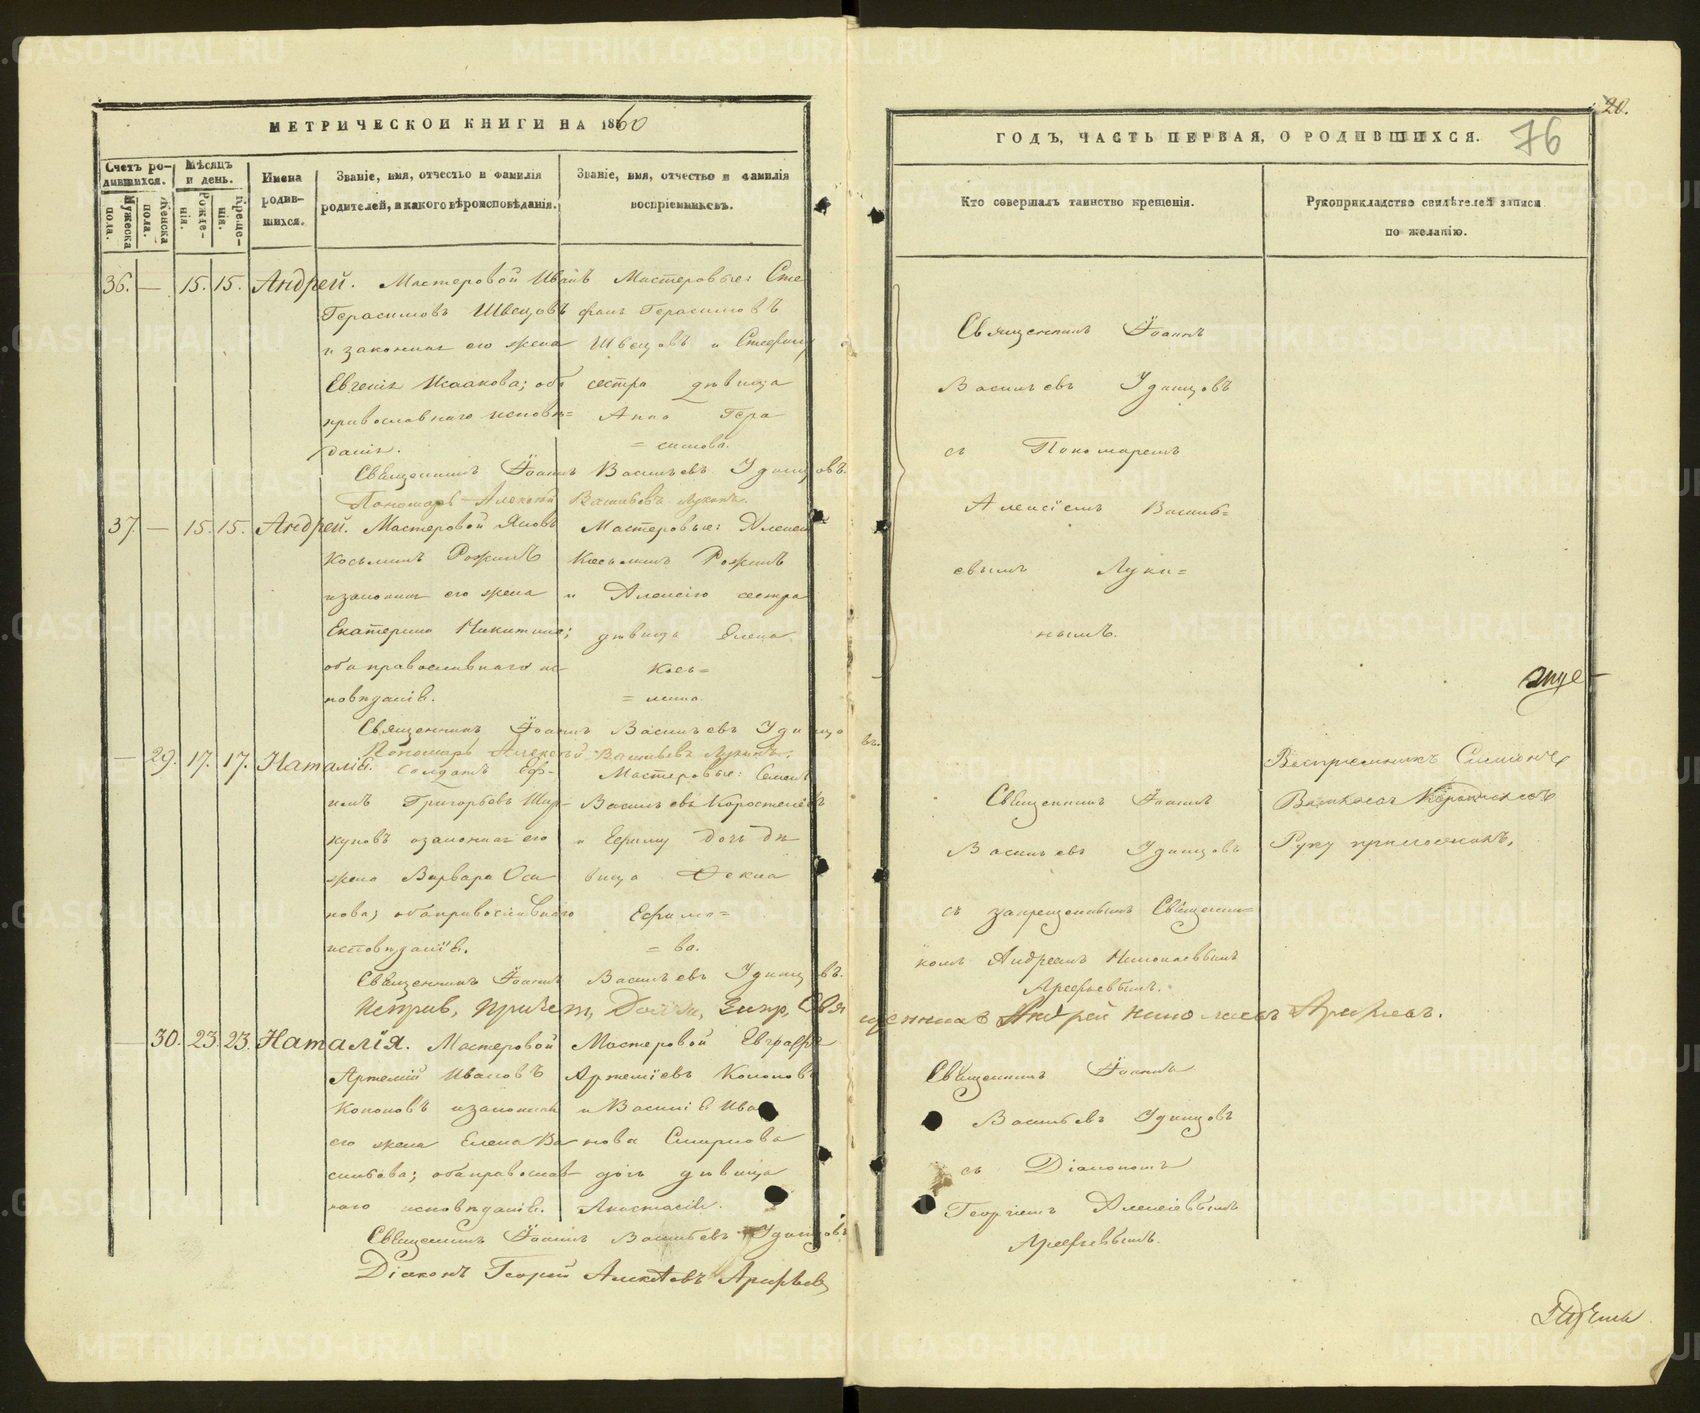 МЕТРИЧЕСКОЙ КНИГИ НА 1860
Счетъ родившихся.
Мѣсяцъ и день.
Имена родившихся.
Званіе, имя, отчество и фамилія родителей, и какого вѣроисповѣданія.
Званіе, имя, отчество и фамилія воспріемниковъ.
Мужеска пола.
Женска пола.
Рожденія.
Крещенія.
36. — 15. 15. Андрей.
Мастеровой Иванъ
Герасимовъ Швецовъ
и законная его жена
Евгенія Исаакова; оба
православнаго исповѣ=
данія.
Мастеровые: Сте
фанъ Герасимовъ
Швецовъ и Стефану
сестра дѣвица
Анна Гера
= симова.
Священникъ Іоаннъ Васильевъ Удинцовъ.
Пономарь Алексѣй Васильевъ Лукинъ.
37. — 15. 15. Андрей.
Мастеровой Яковъ
Косьминъ Рожинъ
и законная его жена
Екатерина Никитина;
оба православнаго ис-
повѣданія.
Мастеровые: Алексѣй
Косьминъ Рожинъ
и Алексію сестра
дѣвица Елена
Кось=
= мина.
Священникъ Іоаннъ Васильевъ Удинцовъ.
Пономарь Алексѣй Васильевъ Лукинъ.
— 29. 17. 17. Наталія.
Солдатъ Еф-
имъ Григорьевъ
и законная его
жена Варвара Оси
пова; оба православнаго
исповѣданія.
Мастеровые: Семенъ
Васильевъ Коростелевъ
и Ефиму дочь дѣ
вица Фекла
Ефимо=
= ва.
Священникъ Іоаннъ Васильевъ Удинцовъ.
Священникъ Андрей Николаевъ Арефьевъ.
— 30. 23. 23. Наталія.
Мастеровой
Артемій Ивановъ
Кононовъ и законная
его жена Елена Ва
сильева; оба православ-
наго исповѣданія.
Мастеровой Евграфъ
Артеміевъ Кононовъ
и Василія Ива
нова Смирнова
дочь дѣвица
Анастасія.
Священникъ Іоаннъ Васильевъ Удинцовъ.
Діаконъ Георгій Алексѣевъ Арефьевъ
20.
76
ГОДЪ, ЧАСТЬ ПЕРВАЯ, О РОДИВШИХСЯ.
Кто совершалъ таинство крещенія.
Рукоприкладство свидѣтелей записи по желанію.
Священникъ Іоаннъ
Васильевъ Удинцовъ
съ Пономаремъ
Алексіемъ Василь=
евымъ Луки=
нымъ.
Священникъ Іоаннъ
Васильевъ Удинцовъ
съ запрещеннымъ Священни=
комъ Андреемъ Николаевымъ
Арефьевымъ.
Воспріемникъ
Руку приложилъ.
Священникъ Іоаннъ
Васильевъ Удинцовъ
съ Діакономъ
Георгіемъ Алексіевымъ
Арефьевымъ.
METRIKI.GASO-URAL.RU